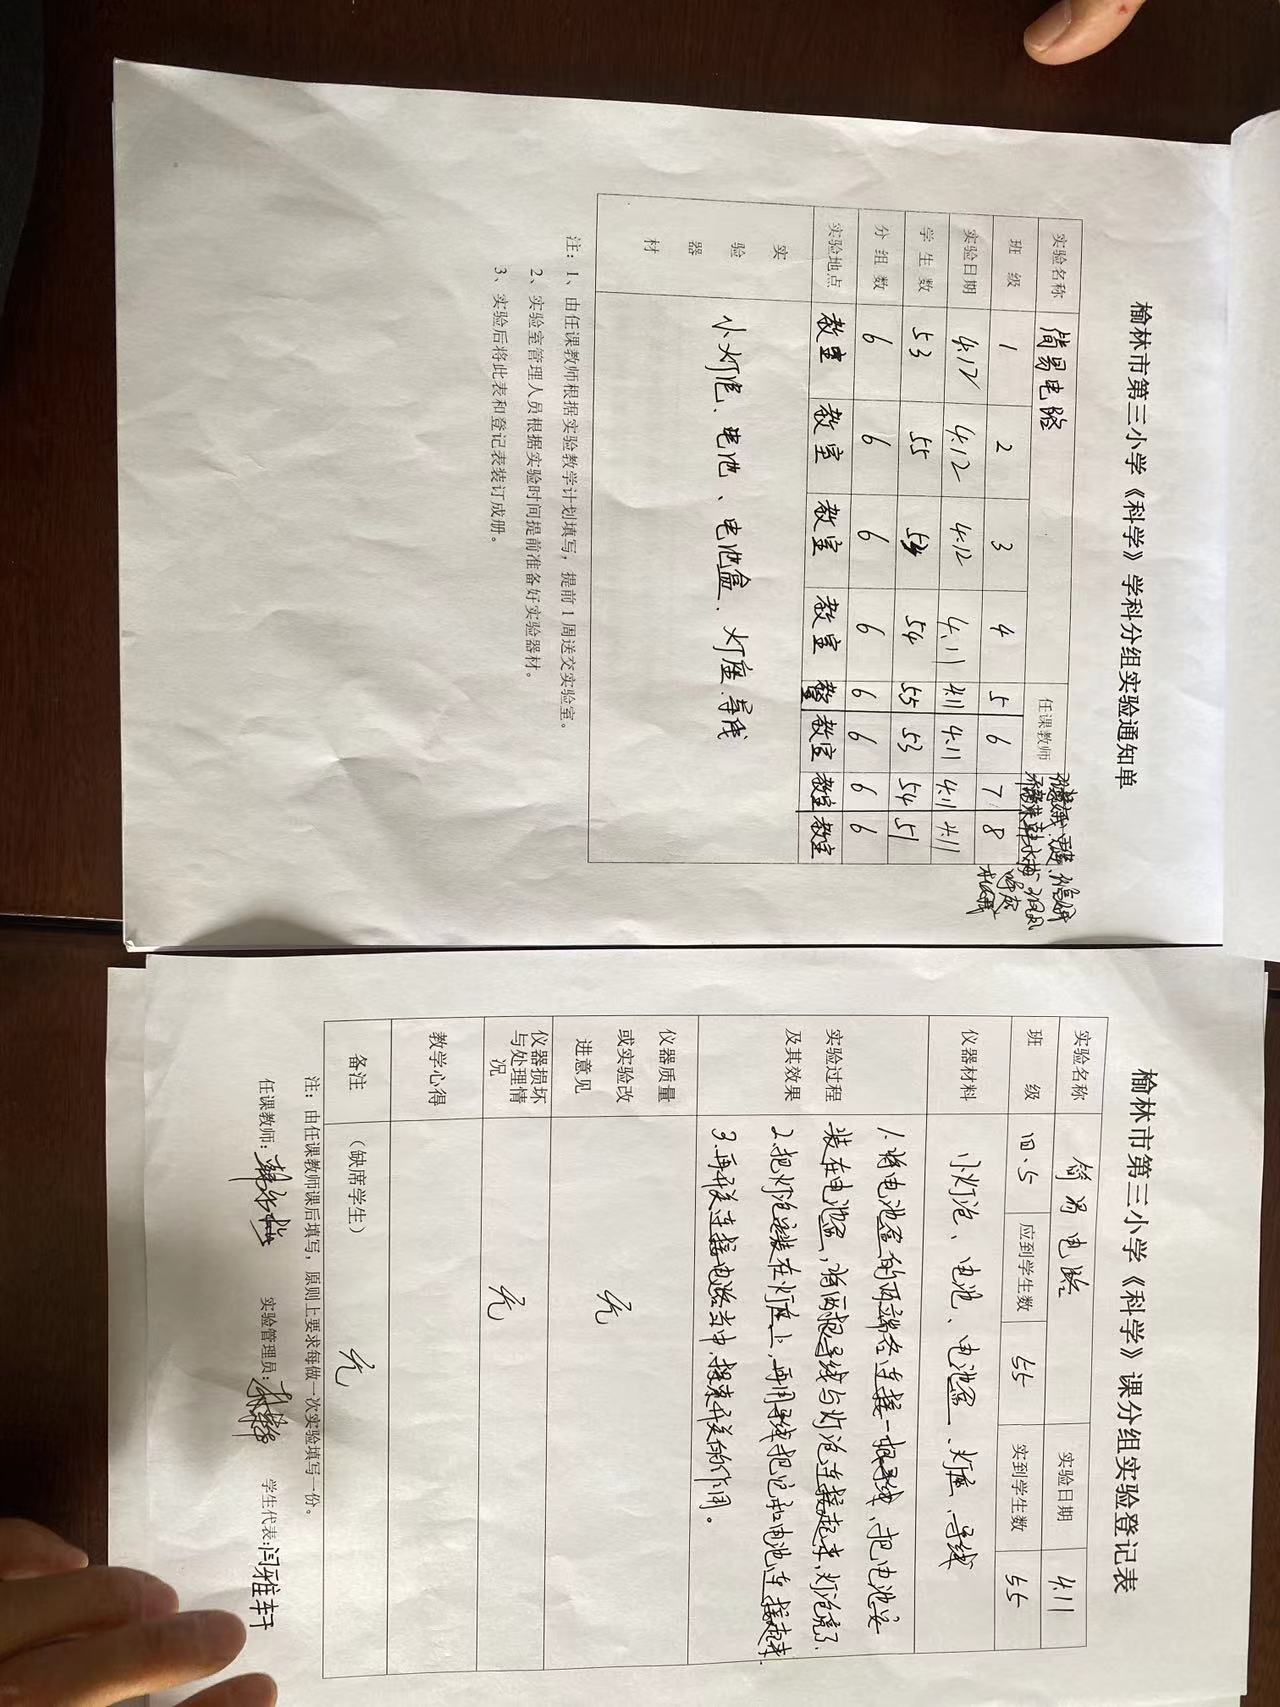 榆林市第三小学《科学》学科分组实验通知单
实验名称 简易电路 任课教师
班 级 1 2 3 4 5 6 7 8
实验日期 4.12 4.12 4.12 4.11 4.11 4.11 4.11 4.11
学 生 数 53 55 54 55 53 54 51
分 组 数 6 6 6 6 6 6 6 6
实验地点 教室 教室 教室 教室 教室 教室 教室 教室
实验器材 小灯泡、电池、电池盒、灯座、导线
注：1、由任课教师根据实验教学计划填写，提前 1 周送交实验室。
2、实验室管理人员根据实验时间提前准备好实验器材。
3、实验后将此表和登记表装订成册。
榆林市第三小学《科学》课分组实验登记表
实验名称 简易电路 实验日期 4.11
班 级 四.5 应到学生数 55 实到学生数 55
仪器材料 小灯泡、电池、电池盒、灯座、导线
实验过程及其效果
1.将电池盒的两端各连接一根导线，把电池安
装在电池盒，将两根导线与灯泡连接起来，灯泡亮了.
2.把灯泡安装在灯座上，再用导线把它和电池连接起来.
3.再开关连接电路当中，探索开关的作用。
仪器质量或实验改进意见 无
仪器损坏与处理情况 无
教学心得
备注 （缺席学生） 无
注：由任课教师课后填写，原则上要求每做一次实验填写一份。
任课教师: 实验管理员: 学生代表:闫雅轩